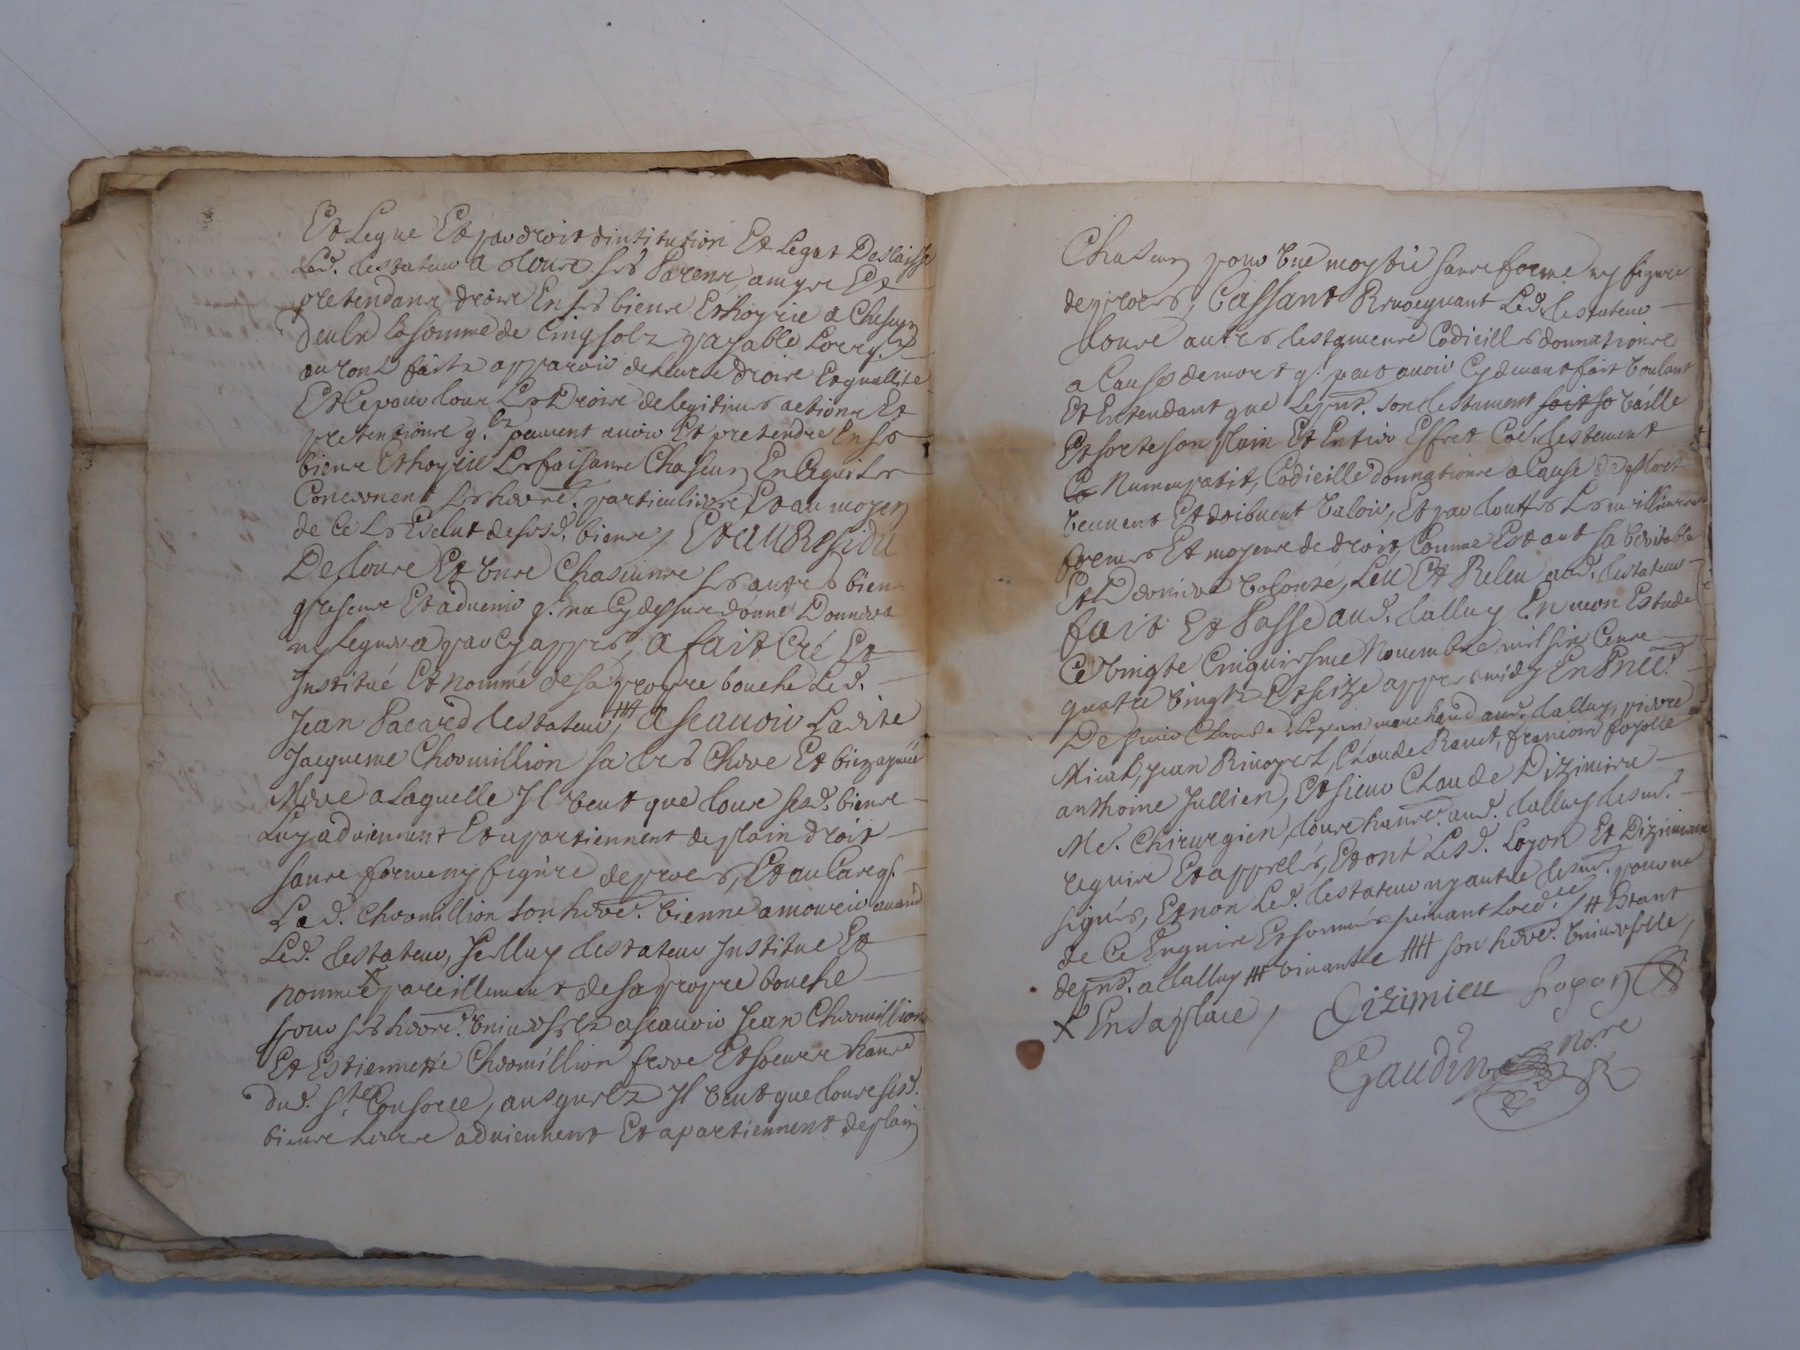 Et Legue Et par droit d'intitution Et Legat Deslaisse
Led. testateur a tous ses Parens, amys Et
pretendans droits En ses biens Et hoyrie a Chascun
deulx la somme de Cinq solz payable Lors qlz
auront faitz apparoir de leurs droits Et quallité
Et Ce pour tous Les Droits de legitimes actions Et
pretentions q.lz peuvent avoir Et pretendre En ses
biens Et hoyrie Les faisants Chascun En Ce qui Les
Concernent Ses herers. particuliers Et au moyen
de Ce Les Exclut de sesd. biens, Et au Residu
De tous Et Uns Chascuns ses autres biens
presens Et advenir q. na Cy dessus donné Donnera
ny leguera par Cy appres, a fait Cré Et
Institué Et Nommé de sa propre bouche Led.
Jean Pacard testateur, # a scavoir Ladite
Jacqueme Chermillion sa tres Chere Et bien aymée
Mere a Laquelle Il Veut que tous sesd. biens
Luy adviennent Et apartiennent de plain droit
sans forme ny figure de proces, Et au Cas q.
Lad. Chermillion son herere. Vienne a mourir avand
Led. testateur, Icelluy testateur Institue Et
nomme pareillement de sa propre bouche
pour ses herers. Universelz a scavoir Jean Chermillion
Et Estiennette Chermillion frere Et soeurs hants
dud. Ste Consorce, ausquelz Il Veut que tous sesd.
biens Leurs adviennent Et apartiennent de plain
Chascun pour Une moytié sans forme ny figure
de proces, Cassant Revocquant Led. testateur
tous autres testaments Codicilles donnations
a Cause de mort q. peut avoir Cy devant fait Voulant
Et Entendant que Le pnt. son testament soit so Vaille
Et sorte son plain Et Entier Effect Coe. testement
Co Nuncupatif, Codicille donnations a Cause de Mort
Peuvent Et doibvent Valoir, Et par touttes Les meillieures
formes Et moyens de droit, Comme Estant sa Veritable
Et Derniere Volonté, Leu Et Releu aud. testateur
fait Et Passé aud. talluy En mon Estude
Ce Vingte Cinquiesme Novembre mil six Cents
quatre Vingtz Et seize appres midy En Pnce.
De sieur Claude Loyon marchand aud. talluy, pierre
Jean Claude Ravet, françois fayolle
anthoine Jullien, Et sieur Claude Dizimieu
Me. Chirurgien, tous hants. aud. talluy tesm.
requis Et appellés, Et ont Lesd. Loyon Et Dizimieu
signés, Et non Led. testateur ny autre tesm. pour ne
de Ce Enquis Et sommés suivant Lord.ce # Estant
de pnt. a talluy ## Vivante ## son herere. Universelle,
X En sa place, Dizimieu Loyon
Gaudin Nore